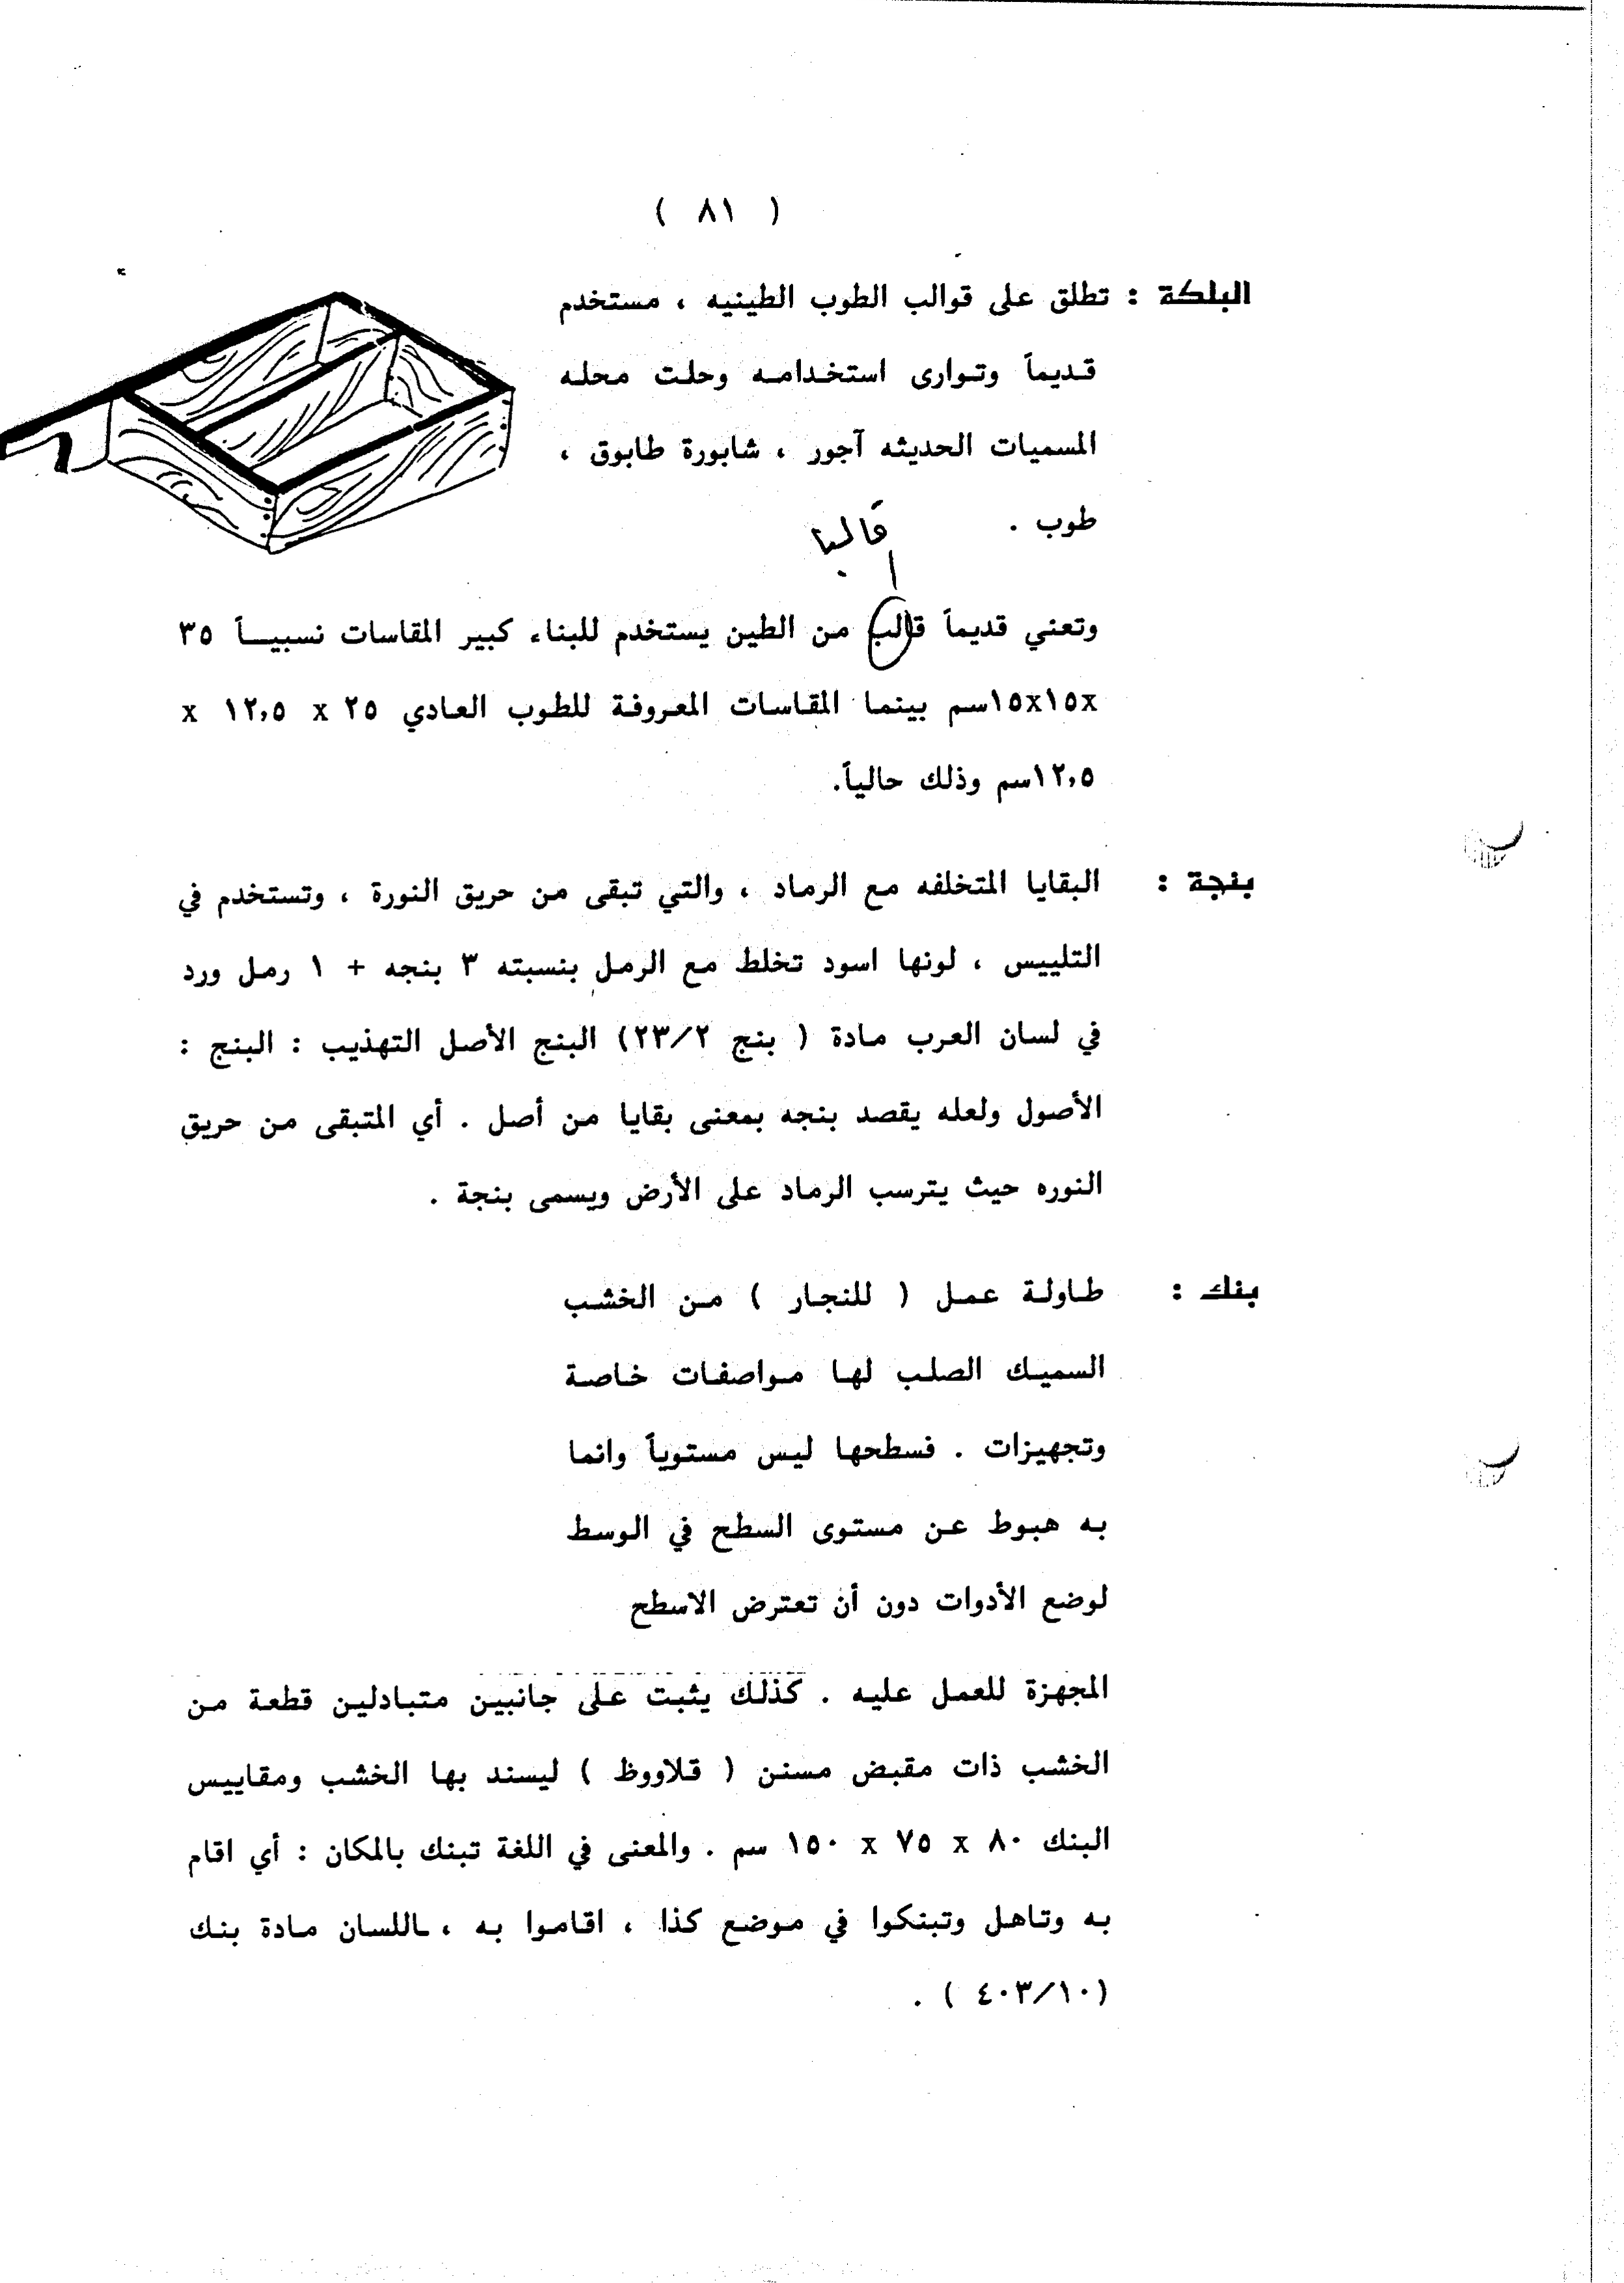 ( ٨١ )
البلكة : تطلق على قوالب الطوب الطينيه ، مستخدم
قديماً وتوارى استخدامه وحلت محله
المسميات الحديثه آجور ، شابورة طابوق ،
طوب .
قالبا
وتعني قديماً قالب من الطين يستخدم للبناء كبير المقاسات نسبيـــاً ٣٥
x١٥x١٥سم بينما المقاسات المعروفة للطوب العادي ٢٥ x ١٢,٥ x
١٢,٥سم وذلك حالياً.
بنجة : البقايا المتخلفه مع الرماد ، والتي تبقى من حريق النورة ، وتستخدم في
التلييس ، لونها اسود تخلط مع الرمل بنسبته ٣ بنجه + ١ رمل ورد
في لسان العرب مادة ( بنج ٢٣/٢) البنج الأصل التهذيب : البنج :
الأصول ولعله يقصد بنجه بمعنى بقايا من أصل . أي المتبقى من حريق
النوره حيث يترسب الرماد على الأرض ويسمى بنجة .
بنك : طاولة عمل ( للنجار ) من الخشب
السميك الصلب لها مواصفات خاصة
وتجهيزات . فسطحها ليس مستوياً وانما
به هبوط عن مستوى السطح في الوسط
لوضع الأدوات دون أن تعترض الاسطح
المجهزة للعمل عليه . كذلك يثبت على جانبين متبادلين قطعة من
الخشب ذات مقبض مسنن ( قلاووظ ) ليسند بها الخشب ومقاييس
البنك ٨٠ x ٧٥ x ١٥٠ سم . والمعنى في اللغة تبنك بالمكان : أي اقام
به وتاهل وتبنكوا في موضع كذا ، اقاموا به ، ـاللسان مادة بنك
(٤٠٣/١٠ ) .